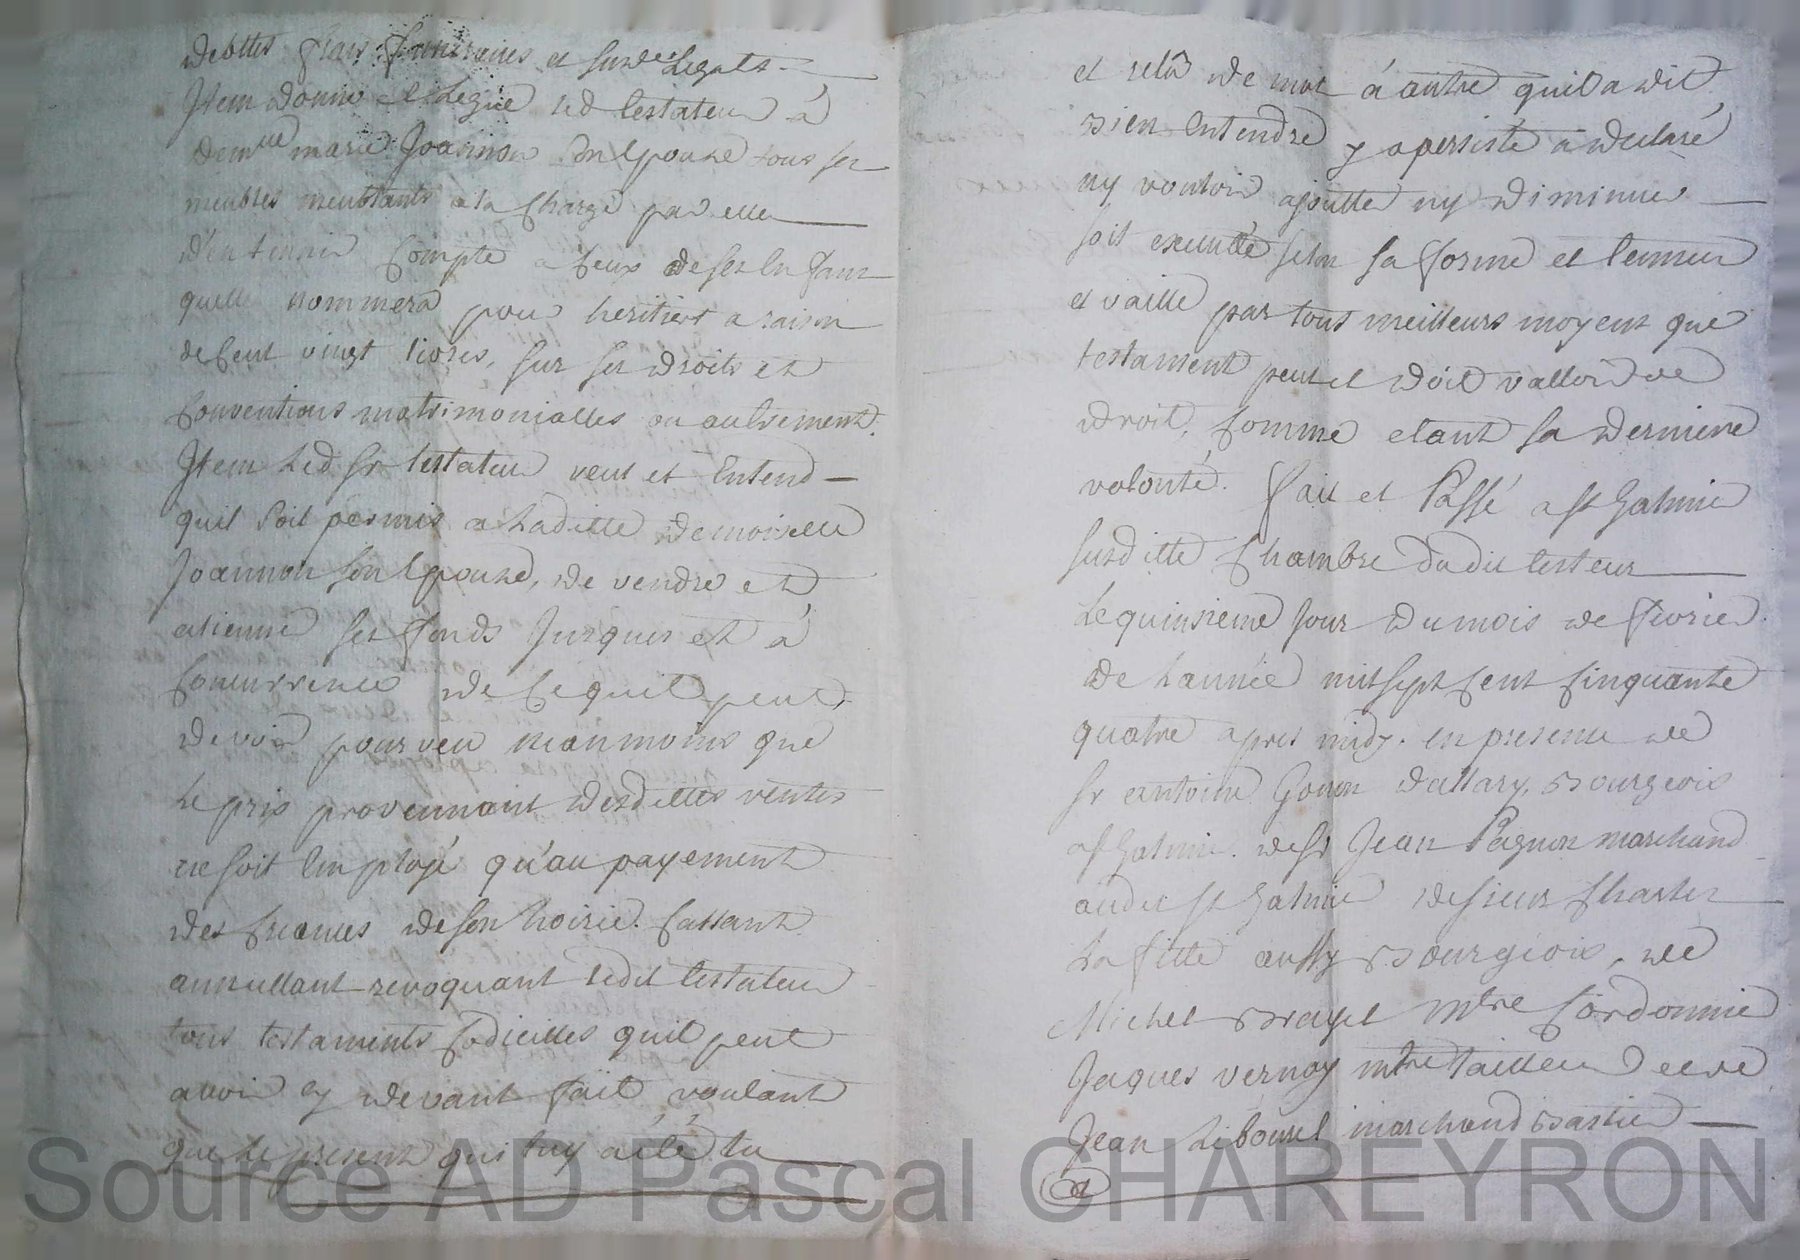 debttes frais funeraires et susd. Legats
Item donne et Legue led testateur à
demlle marie Joannon son Epouse tous ses
meubles meublants a la charge par elle
d'en tenir compte a ceux de ses Enfans
quelle nommera pour heritiers a raison
de cent vingt livres, sur ses droits et
conventions matrimonialles ou autrement.
Item Led. Sr testateur veut et Entend
quil soit permis a Laditte demoiselle
Joannon son Epouse, de vendre et
aliener ses fonds Jusques et à
concurrence de ce quil peut
devoir pourveu neanmoins que
Le prix provennant desdittes ventes
ne soit Employé qu'au payement
des creances de son hoirie. Cassant
annullant revoquant ledit testateur
tous testaments codicilles quil peut
avoir cy devant fait, voulant
que Le present qui luy a été lu
et relû de mot à autre quil a dit
bien Entendre y a persisté a declaré
ny vouloir ajoutter ny diminuer
soit executté selon sa forme et teneur
et vaille par tous meilleurs moyens que
testament peut et doit valloir de
droit, comme etant sa derniere
volonté. Fait et Passé a St Galmier
susditte chambre dudit testeur
Le quinsieme jour du mois de fevrier
de L'année mil sept cent cinquante
quatre apres midy. en presence de
Sr antoine Gonon dallary, Bourgeois
a St Galmier. de Sr Jean Pagnon marchand
audit St Galmier de sieur Charles
La fitte aussy Bourgeois, de
Michel Brayet mtre Cordonnier
Jaques vernay mtre tailleur et de
Jean Lebouret marchand Bastier
Source AD Pascal CHAREYRON